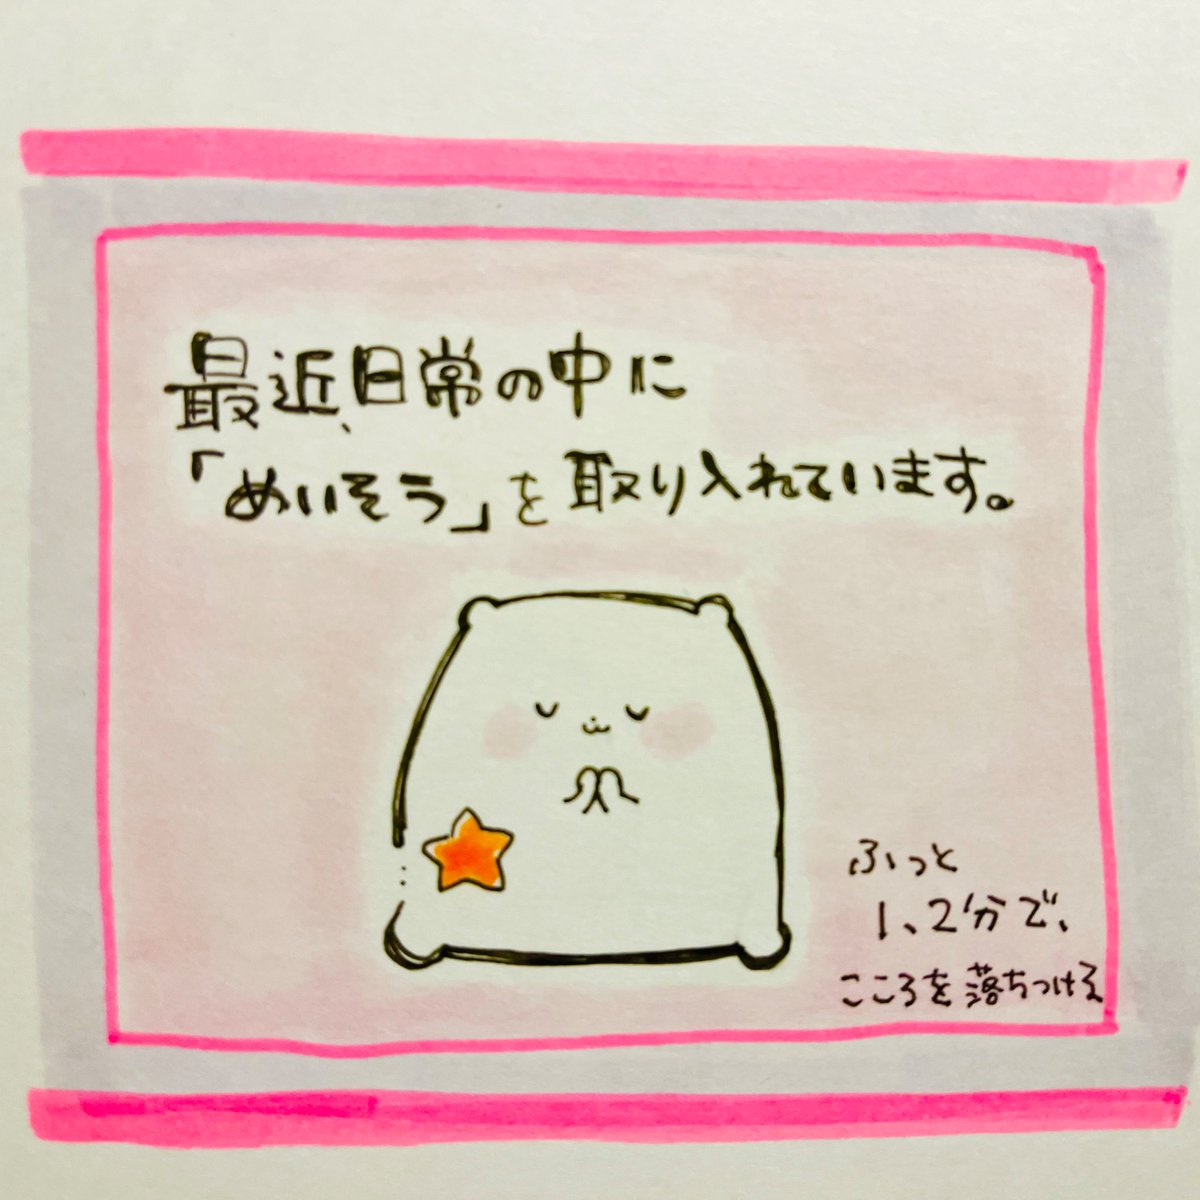 最近、日常の中に
「めいそう」を取り入れています。
ふっと
1、2分で、
こころを落ちつける